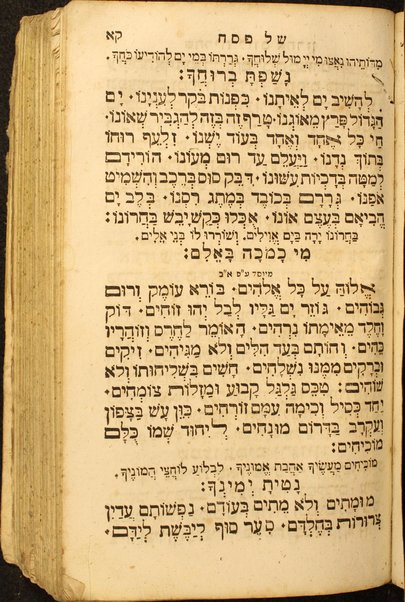 של פסח
קא
מדותיהו נאצו מי יי מול שלוחך · גררתו במי ים להודיעו כחך
נשפת ברוחך :
להשיב ים לאיתנו · כפנות בקר לעינינו · ים
הגדול פרץ מאוגנו · טרף זה בזה להגביר שאונו ·
חי כל אחד ואחד בעוד ישנו · זלעף רוחו
בתוך נדנו · ויעלם עד רום מעונו · הורידם
למטה בדכיות עשונו · דבק סוס ברכב והשמיט
אפנו · גררם בכובד במתג רסנו · בלב ים
הביאם בעצם אונו · אכלו כקש יבש בחרונו :
בחרונו ירה בים אוילים · ושוררו לו בני אלים ·
מי כמכה באלם :
מיוסד ע״ס א״ב
אלוה על כל אלהים · בורא עומק ורום
גבוהים · גוזר ים גליו לבל יהו זוחים · דוק
וחלד מאימתו נרהים · האומר לחרס וזוהריו
כהים · וחותם בעד הלים ולא מגיהים · זיקים
וברקים ממנו נשלחים · חשים בשליחותו ולא
שוהים : טכס גלגל קבוע ומזלות צומחים ·
יחד כסיל וכימה עמם זורחים · כוון עש בצפון
ועקרב בדרום מונחים · ליחוד שמו כלם
מוכיחים :
מוכיחים מעשיך אהבת אמוניך · לבלוע לוחצי המוניך
נטית ימינך :
מומתים ולא מתים בעודם · נפשותם עדין
צרורות בחלדם · סער סוף ליבשת לידם ·